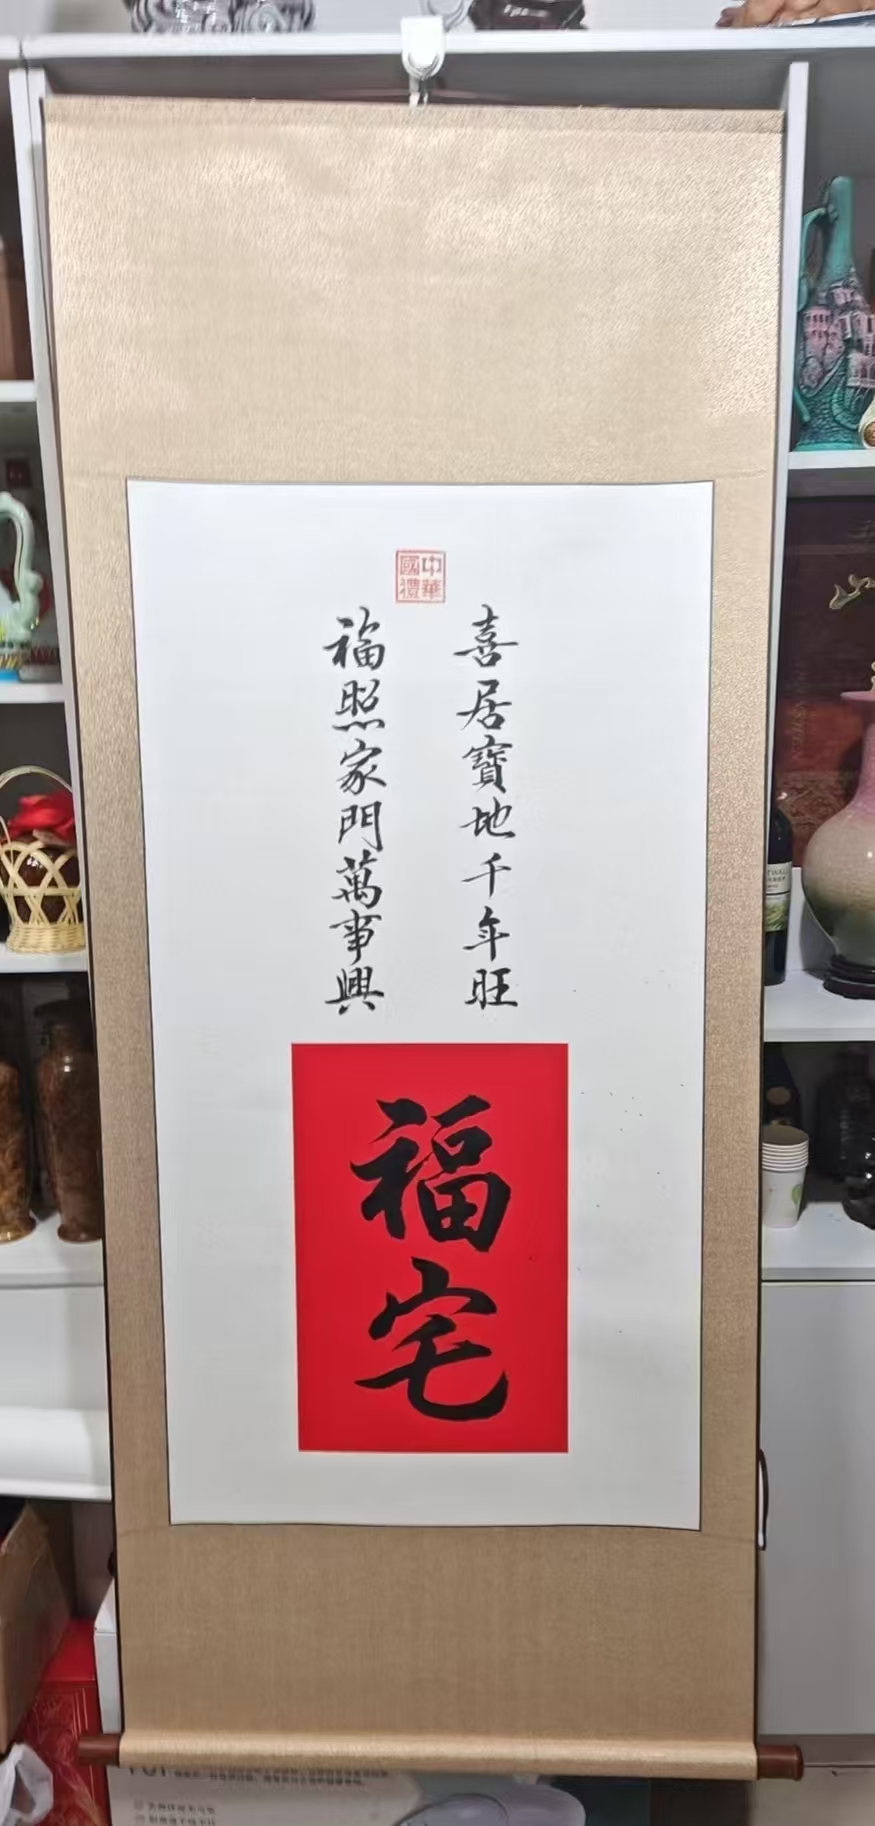 中華國禮
喜居寶地千年旺
福照家門萬事興
福宅